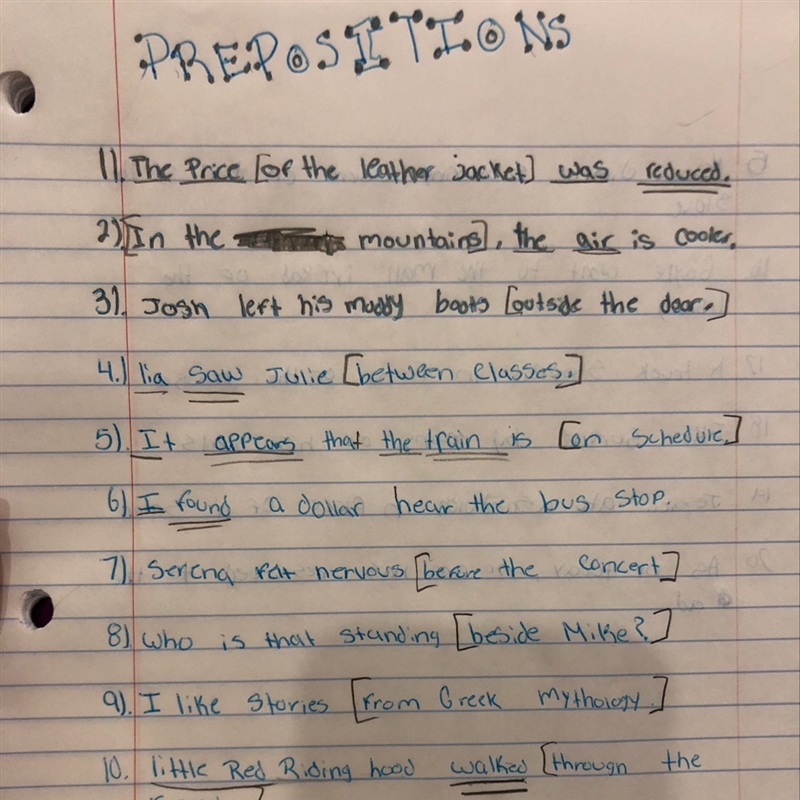 PREPOSITIONS
1). The Price [of the leather jacket] was reduced.
2) [In the mountains], the air is cooler.
3). Josh left his muddy boots [outside the door.]
4.) lia saw Julie [between classes.]
5). It appears that the train is [on schedule.]
6). I found a dollar near the bus stop.
7). Serena felt nervous [before the concert]
8) Who is that standing [beside Mike?]
9). I like stories [from Greek mythology.]
10. little Red Riding hood walked [through the